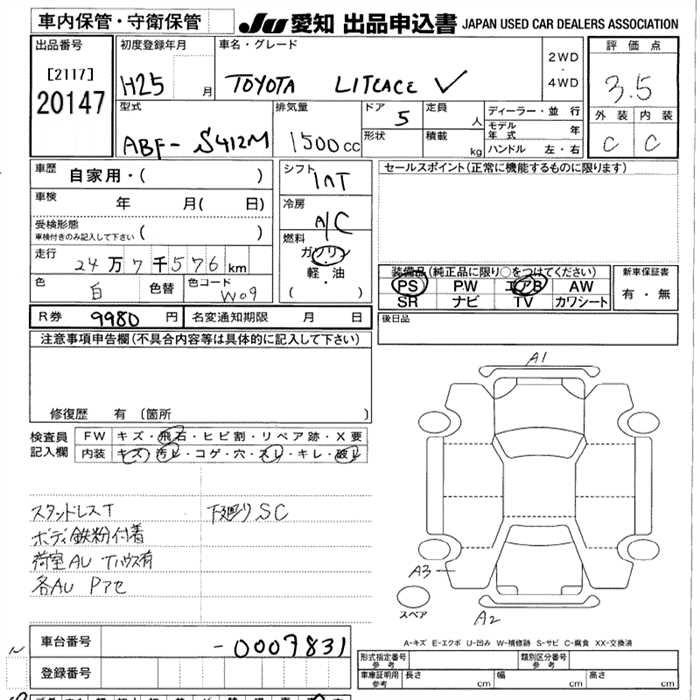 車内保管・守衛保管
JU 愛知 出品申込書 JAPAN USED CAR DEALERS ASSOCIATION
出品番号
[2117]
20147
初度登録年月
H25 月
車名・グレード
TOYOTA LITEACE V
2WD
・
4WD
評価点
3.5
外装 内装
C C
型式
ABF- S412M
排気量
1500cc
ドア 5
形状
定員 人
積載 kg
ディーラー・並行
モデル年式 年
ハンドル 左・右
車歴 自家用・( )
車検 年 月( 日)
受検形態
車検付きのみ記入して下さい ( )
走行 24万7千576km
色 白 色替 色コード W09
R券 9980 円 名変通知期限 月 日
シフト
INT
冷房
A/C
燃料
ガソリン
・
軽・油
( )
セールスポイント(正常に機能するものに限ります)
装備品(純正品に限り○をつけてください)
PS PW エアB AW
SR ナビ TV カワシート
新車保証書
有・無
後日品
注意事項申告欄(不具合内容等は具体的に記入して下さい)
修復歴 有 (箇所 )
検査員記入欄
FW キズ・飛石・ヒビ割・リペア跡・X要
内装 キズ・汚レ・コゲ・穴・スレ・キレ・破レ
スタッドレスT
下廻りSC
ボディ鉄粉付着
荷室AU Tハウス有
各AU Pアセ
A1
A3
スペア
A2
A-キズ E-エクボ U-凹み W-補修跡 S-サビ C-腐食 XX-交換済
車台番号 -0007831
登録番号
形式指定番号 参考
類別区分番号 参考
車庫証明用 参考 長さ cm 幅 cm 高さ cm